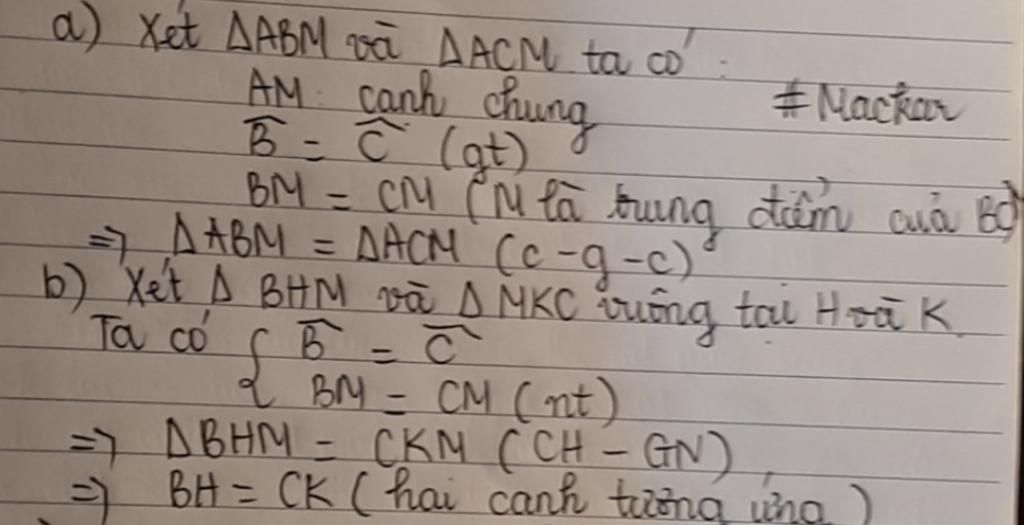 a) Xét ΔABM và ΔACM ta có :
AM : cạnh chung #Mackar
B̂ = Ĉ (gt)
BM = CM (M là trung điểm của BC)
=> ΔABM = ΔACM (c-g-c)
b) Xét Δ BHM và Δ MKC vuông tại H và K
Ta có { B̂ = Ĉ
BM = CM (nt)
=> ΔBHM = CKM (CH - GN)
=> BH = CK (hai cạnh tương ứng)